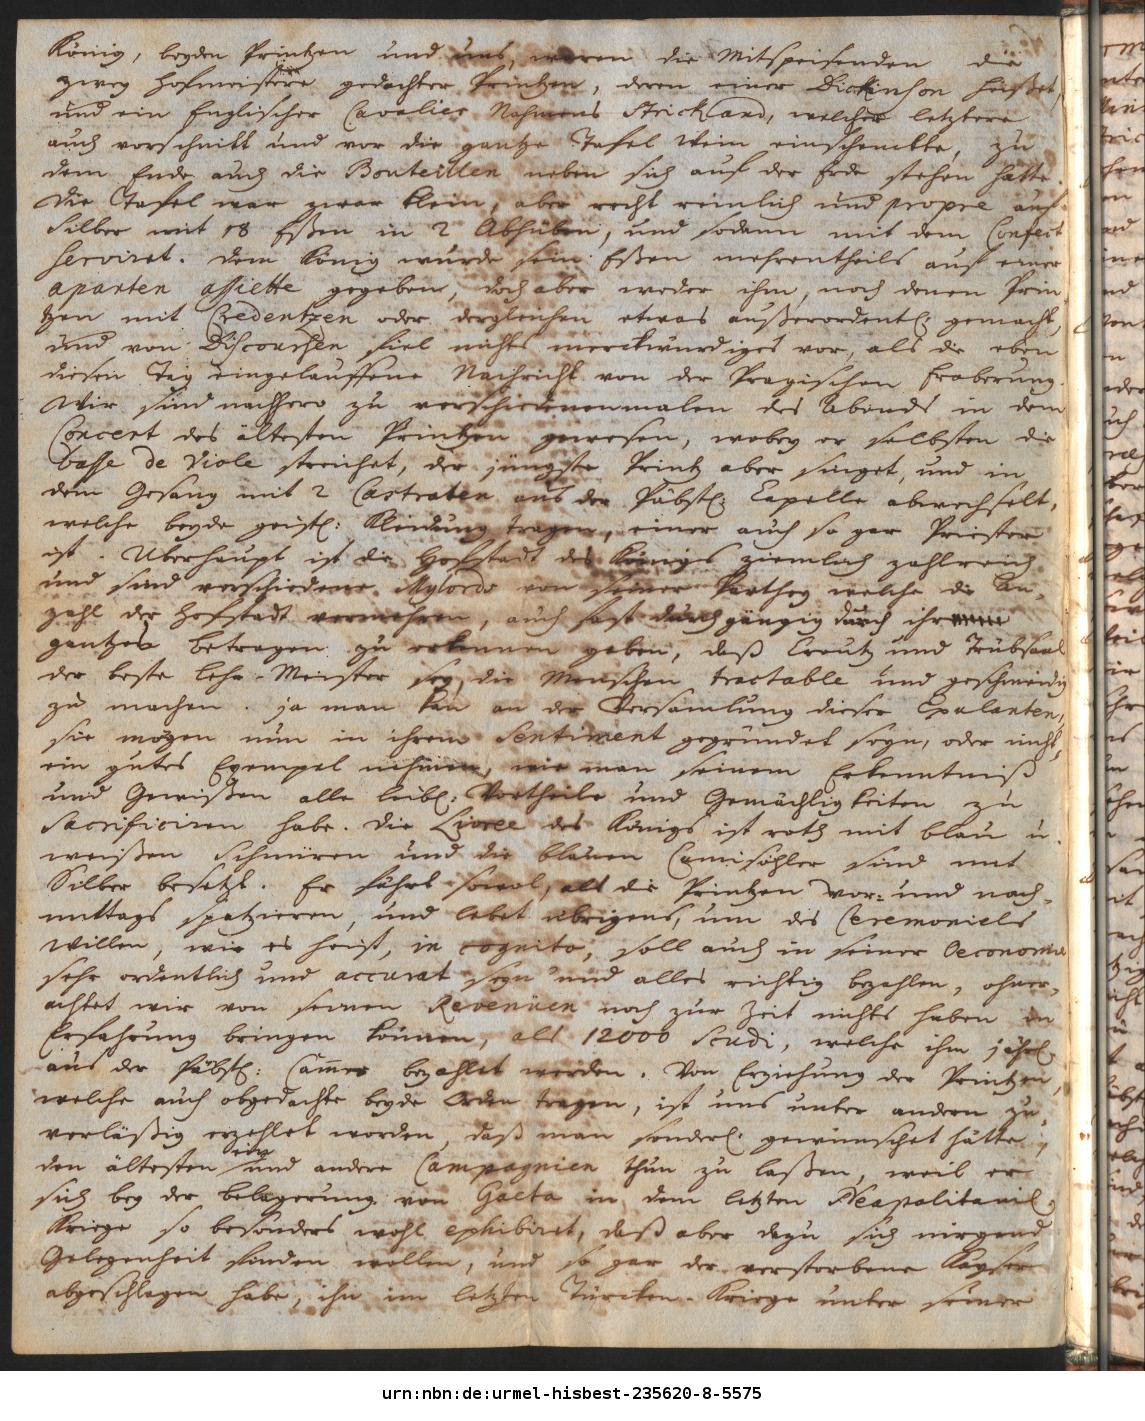 König, beyden Printzen und uns, waren die Mitspeisenden die
zwey Hofmeistere gedachter Printzen, deren einer Dickinson heißet,
und ein Englischer Cavalier Nahmens Strickland, welcher letztere
auch vorschnitt und vor die gantze Tafel Wein einschenckte, zu
dem Ende auch die Bouteillen neben sich auf der Erde stehen hatte.
Die Tafel war zwar klein, aber recht reinlich und propre auf
Silber mit 18 Eßen in 2 Abhüben, und sodann mit dem Confect
serviret. Dem König wurde sein Eßen mehrentheils auf einer
aparten assiette gegeben, doch aber weder ihm, noch denen Prin-
tzen mit Credentzen oder dergleichen etwas außerordentl: gemacht,
und von Discoursen fiel nichts merckwürdiges vor, als die eben
diesen Tag eingelauffene Nachricht von der Pragischen Eroberung.
Wir sind nachhero zu verschiedenenmalen des Abends in dem
Concert des ältesten Printzen gewesen, wobey er selbsten die
basse de Viole streichet, der jüngste Printz aber singet, und in
dem Gesang mit 2 Castraten aus der Päbstl: Capelle abwechselt,
welche beyde geistl: Kleidung tragen, einer auch so gar Priester
ist. Uberhaupt ist die Hofstadt des Königs ziemlich zahlreich
und sind verschiedene Mylords von seiner Parthey welche die An-
zahl der Hofstadt vermehren, auch fast durchgängig durch ihr
gantzes betragen zu erkennen geben, daß Creutz und Trübsaal
der beste Lehr-Meister sey, die Menschen tractable und geschmeidig
zu machen. ja man kan an der Versamlung dieser Exulanten,
sie mögen nun in ihrem Sentiment gegründet seyn, oder nicht,
ein gutes Exempel nehmen, wie man seinem Erkenntniß
und Gewißen alle leibl: Vortheile und Gemächligkeiten zu
sacrificiren habe. Die Livree des Königs ist roth mit blau u.
weißen Schnüren und die blauen Camisöhler sind mit
Silber besetzt. Er fährt sowol, als die Printzen vor- und nach-
mittags spatzieren, und lebet übrigens, um des Ceremoniels
willen, wie es heist, in cognito, soll auch in seiner Oeconomie
sehr ordentlich und accurat seyn und alles richtig bezahlen, ohner-
achtet wir von seinen Revenüen noch zur Zeit nichts haben in
Erfahrung bringen können, als 12000 Scudi, welche ihm jährl.
aus der Päbstl: Cammer bezahlet werden. Von Erziehung der Printzen,
welche auch obgedachte beyde Orden tragen, ist uns unter andern zu-
verläßig erzehlet worden, daß man sonderl. gewünschet hätte
den ältesten ein und andere Campagnien thun zu laßen, weil er
sich bey der belagerung von Gaeta in dem letzten Neapolitanil.
Kriege so besonders wohl exhibiret, daß aber dazu sich nirgend
Gelegenheit finden wollen, und so gar der verstorbene Kayser
abgeschlagen habe, ihn im letzten Türcken-Kriege unter seiner
urn:nbn:de:urmel-hisbest-235620-8-5575